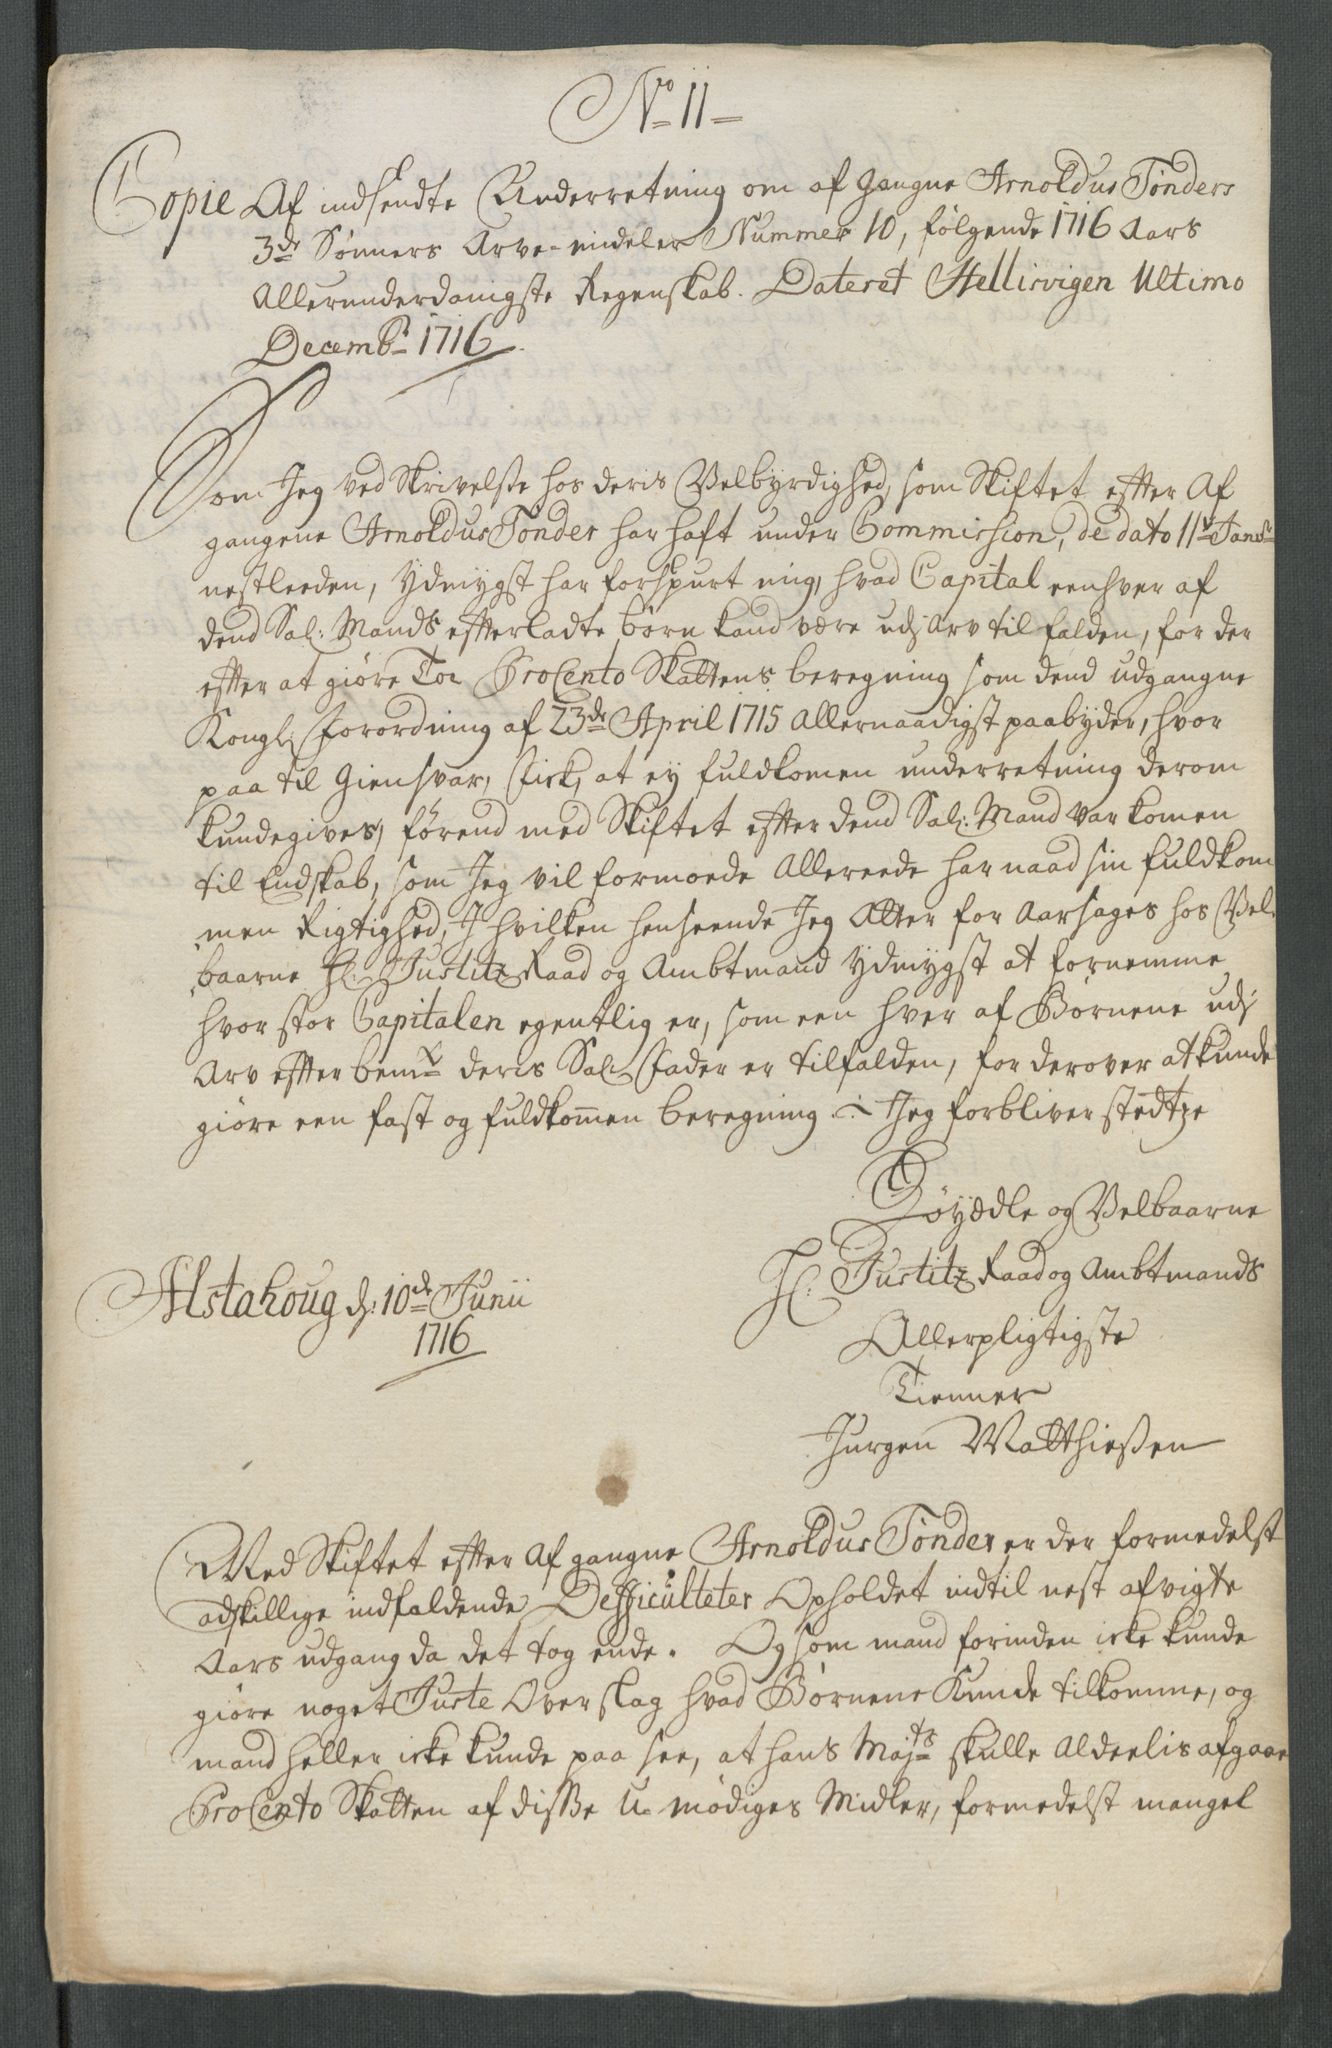 No 11
Copie Af indsendte Underretning om afgangne Arnoldus Tønders
3de Sønners Arve-mideler Nummer 10, følgende 1716 Aars
Allerunderdanigste Regenskab. Dateret Hellisvigen Ultimo
Decembr 1716
Som Jeg ved Skrivelse hos deris Velbyrdighed, som Skiftet efter Af
gangene Arnoldus Tønder har haft under Commission, de dato 11t Janr
nestleeden, ydmygst har forspurt mig, hvad Capital eenhver af
dend Sal: Mands efterladte børn kand være udj arv tilfalden, for der
efter at giøre Toe ProCento Skattens beregning som dend udgangne
Kongl: Forordning af 23de April 1715 allernaadigst paabyder, hvor
paa til Giensvar, Fick, at ey fuldkomen underretning derom
kunde gives, førend med Skiftet efter dend Sal: Mand var komen
til Endskab, som Jeg vil formoede Allereede har naad sin fuldkom
men Rigtighed, J hvilken henseende Jeg Atter foraarsages hos Vel
baarne Hr: Justitz Raad og Ambtmand ydmygst at fornemme
hvor stor Capitalen egentlig er, som een hver af Børnene udj
Arv efter bemte deris Sal: Fader er tilfalden, for derover at kunde
giøre een fast og fuldkommen beregning :/: Jeg forbliver stedtze
Høyædle og Velbaarne
Hr: Justitz Raad og Ambtmands
Allerpligtigste
Tienner
Jurgen Matthiesen
Alstahoug d: 10de Junii
1716
Med Skiftet efter Afgangne Arnoldus Tønder er der formedelst
adskillige indfaldende Defficulteter Opholdet indtil nest afvigte
Aars udgang da det tog ende. Og som mand forinden icke kunde
giøre noget Juste Overslag hvad Børnene Kunde tilkomme, og
mand heller icke kunde paa see, at hans Majts skulle Aldeelis afgaae
ProCento Skatten af disse U-mødiges Midler, formedelst mangel